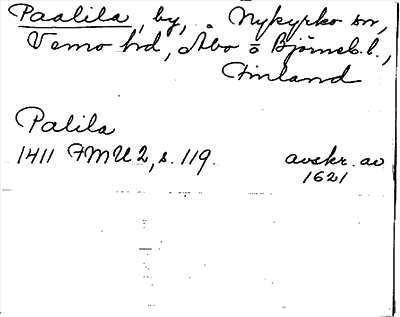 Paalila, by, Nykyrko sn,
Vemo hd, Åbo o Björneb. l.,
Finland
Palila
1411 FMU 2, s. 119. avskr. av
1621